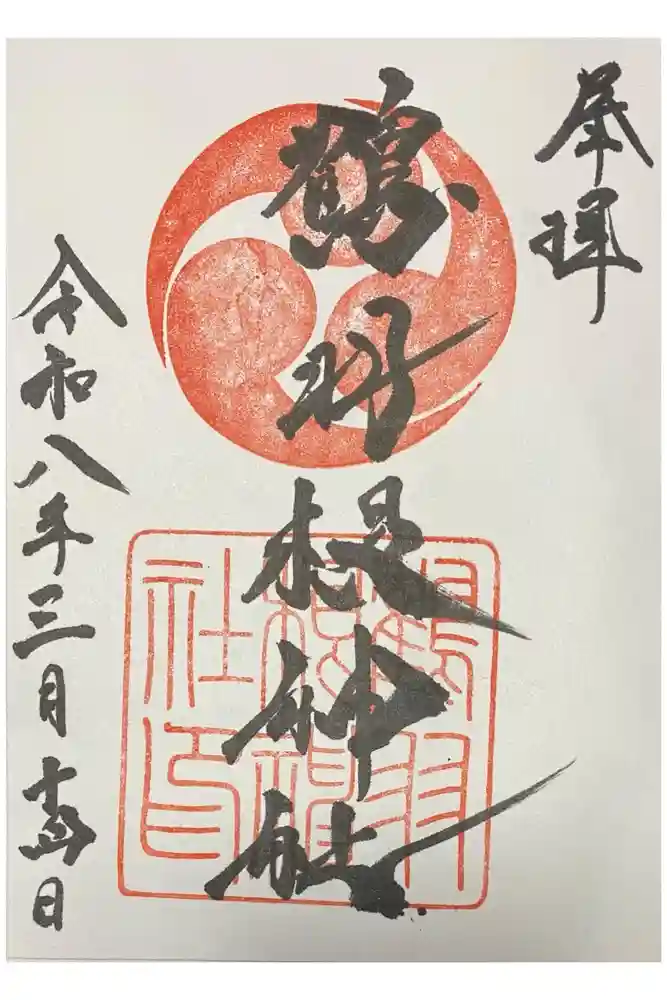 奉拝
鶴羽根神社
令和八年三月十日
鶴羽
根神
社印